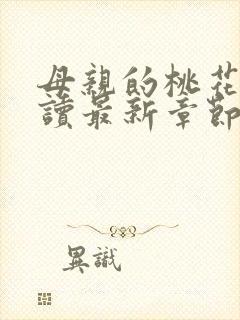 母親的桃花
讀最新章節
異識